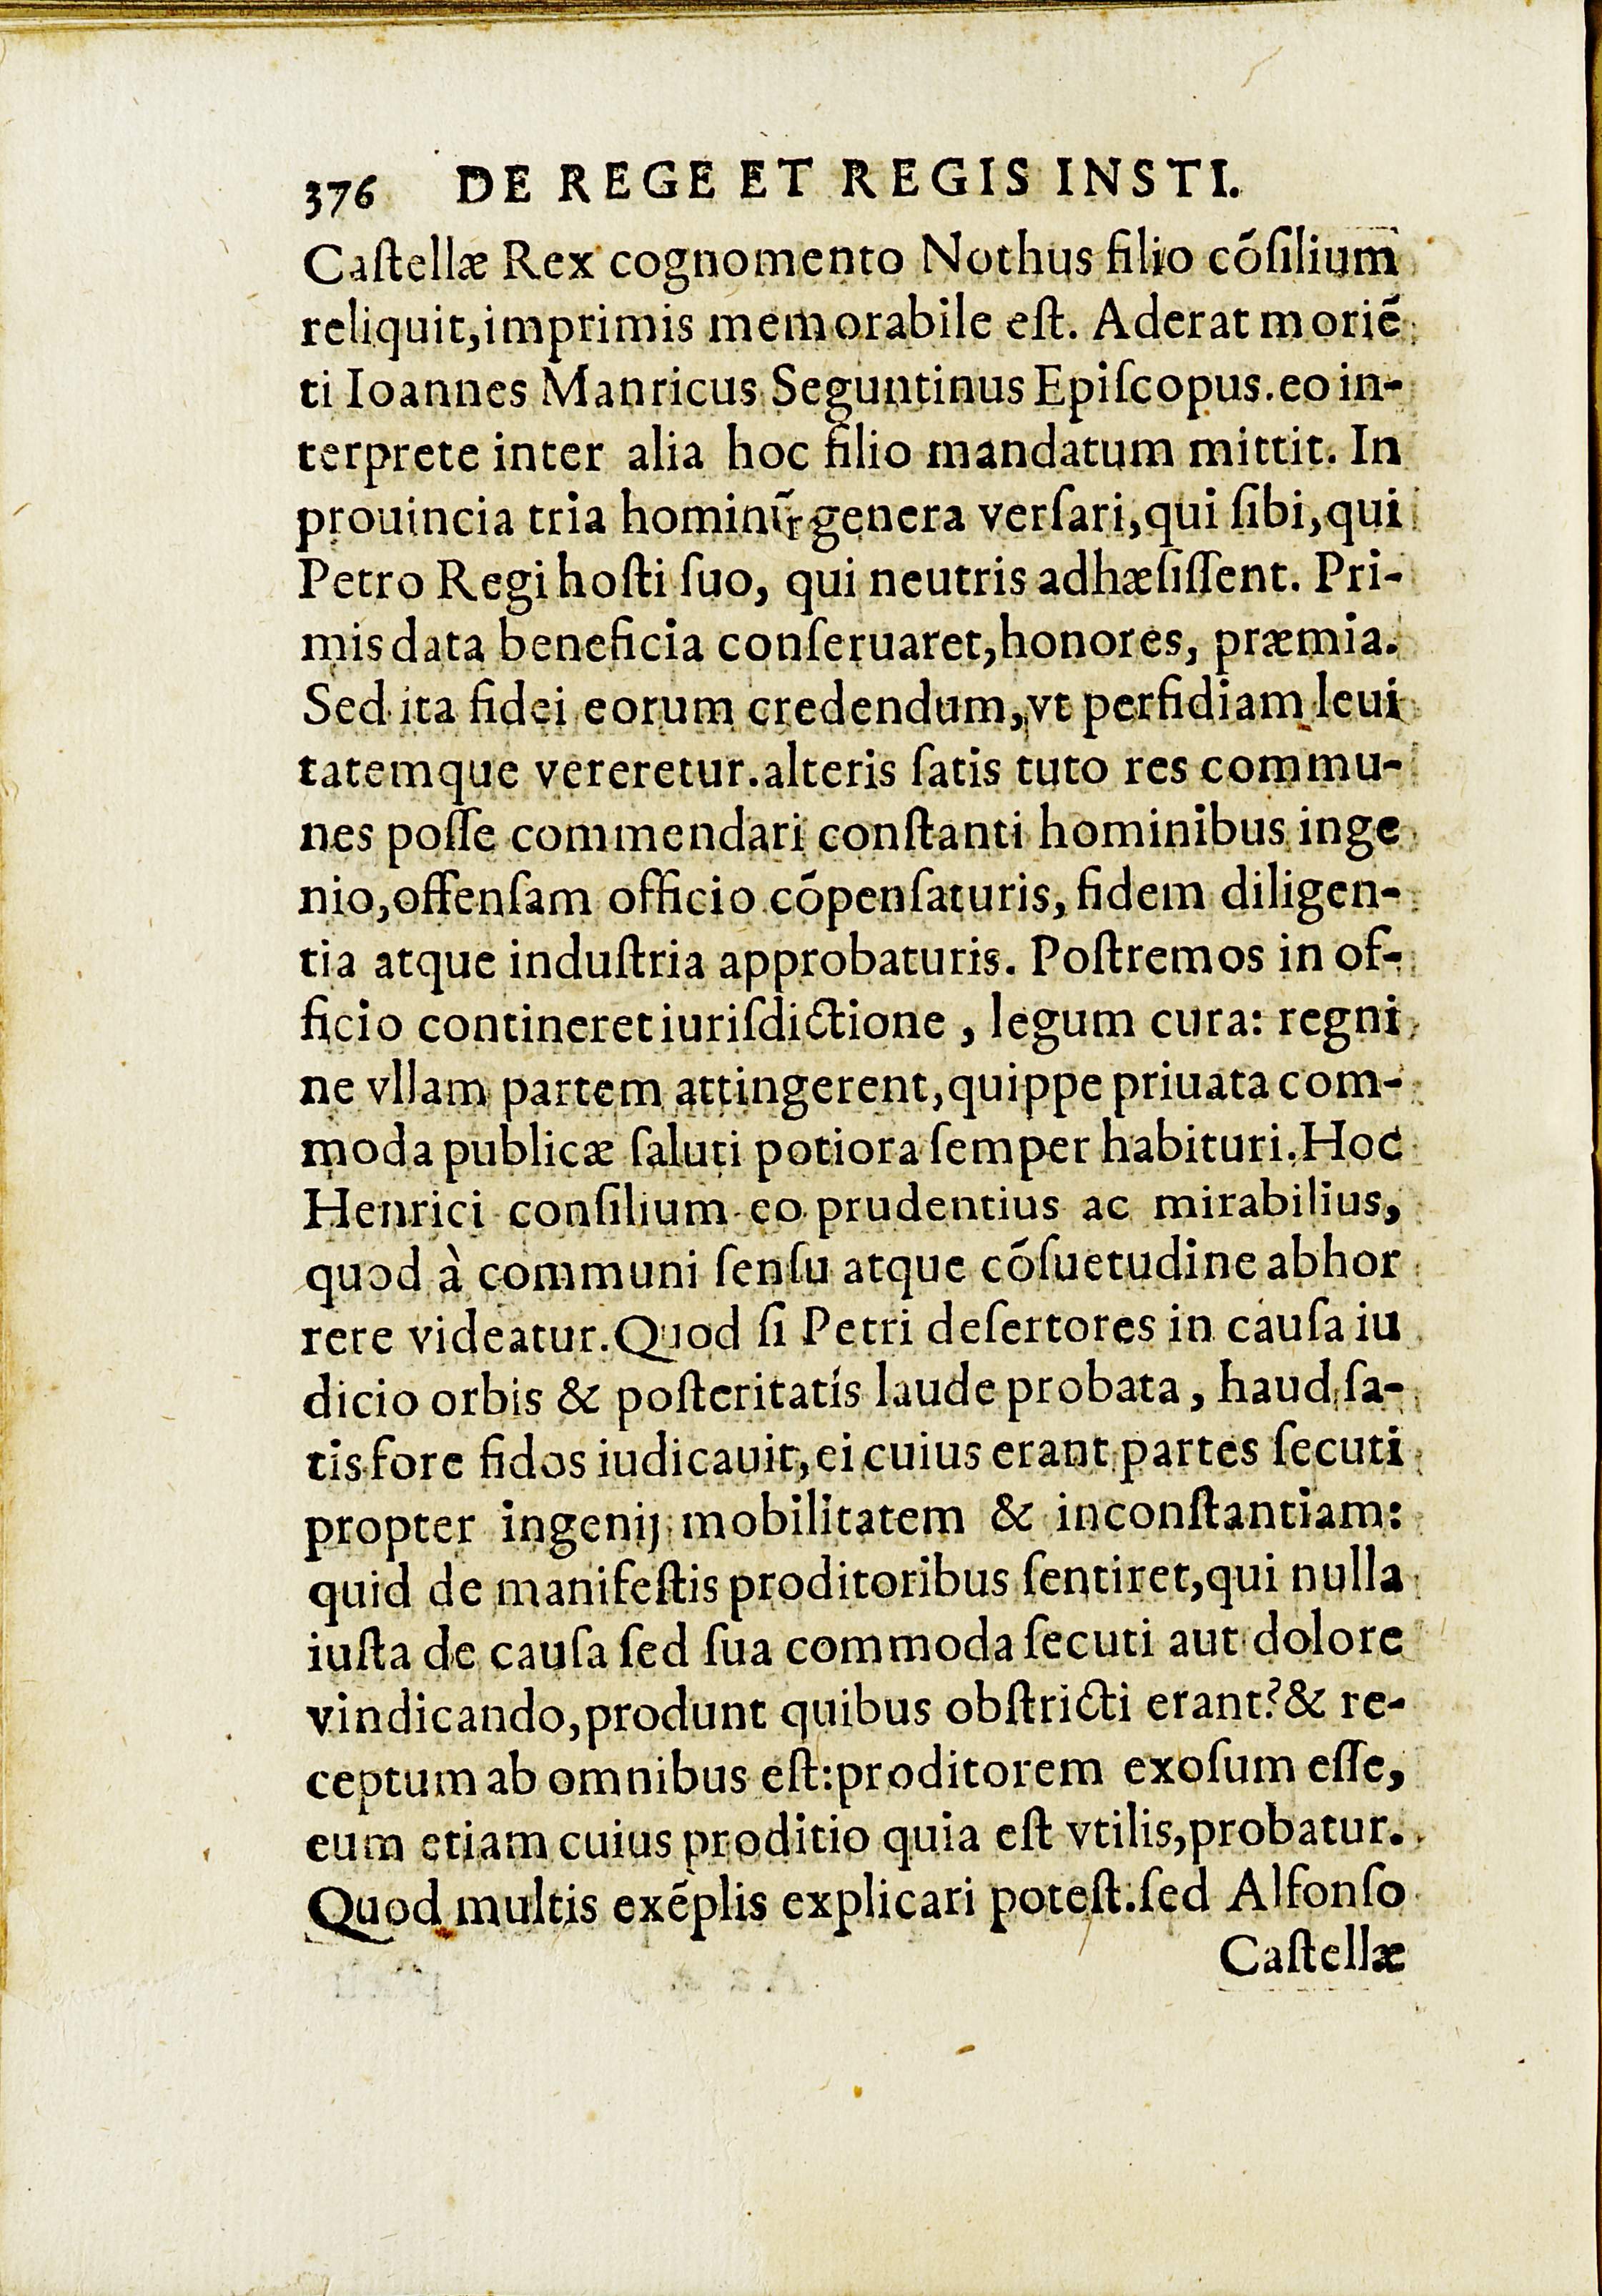 376 DE REGE ET REGIS INSTI.
Caſtellæ Rex cognomento Nothus filio cõſilium
reliquit,imprimis memorabile eſt. Aderat moriẽ
ti Ioannes Manricus Seguntinus Epiſcopus.eo in-
terprete inter alia hoc filio mandatum mittit. In
prouincia tria hominũ genera verſari,qui ſibi,qui
Petro Regi hoſti ſuo, qui neutris adhæſiſſent. Pri-
mis data beneficia conſeruaret,honores, præmia.
Sed ita fidei eorum credendum,vt perfidiam leui
tatemque vereretur.alteris ſatis tuto res commu-
nes poſſe commendari conſtanti hominibus inge
nio,offenſam officio cõpenſaturis, fidem diligen-
tia atque induſtria approbaturis. Poſtremos in of-
ficio contineret iuriſdictione , legum cura: regni
ne vllam partem attingerent,quippe priuata com-
moda publicæ ſaluti potiora ſemper habituri.Hoc
Henrici conſilium eo prudentius ac mirabilius,
quod à communi ſenſu atque cõſuetudine abhor
rere videatur.Quod ſi Petri deſertores in cauſa iu
dicio orbis & poſteritatis laude probata, haud ſa-
tis fore fidos iudicauit,ei cuius erant partes ſecuti
propter ingenij mobilitatem & inconſtantiam:
quid de manifeſtis proditoribus ſentiret,qui nulla
iuſta de cauſa ſed ſua commoda ſecuti aut dolore
vindicando,produnt quibus obſtricti erant?& re-
ceptum ab omnibus eſt:proditorem exoſum eſſe,
eum etiam cuius proditio quia eſt vtilis,probatur.
Quod multis exẽplis explicari poteſt.ſed Alfonſo
Caſtellæ